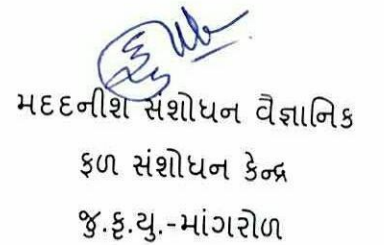 મદદનીશ સંશોધન વૈજ્ઞાનિક
ફળ સંશોધન કેન્દ્ર
જુ.કૃ.યુ.-માંગરોળ